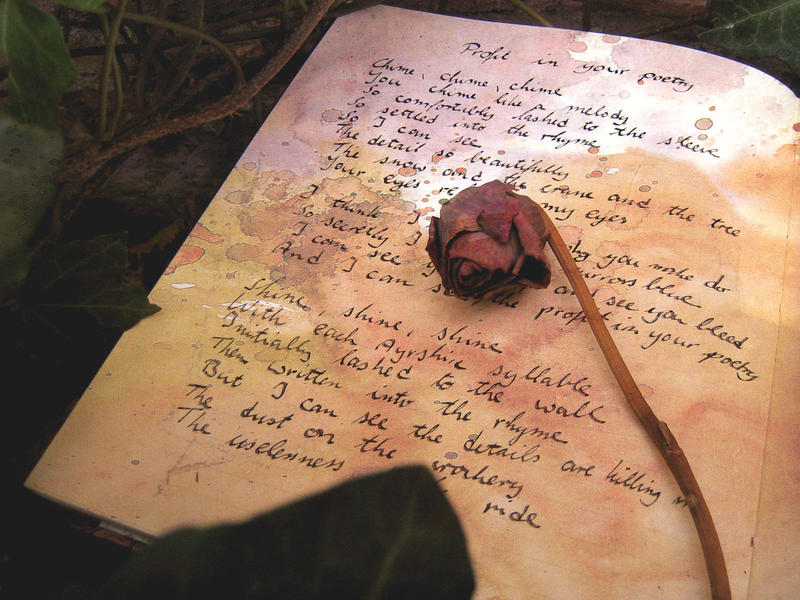 Profit in your poetry
Chime, chime, chime
You chime like a melody
So comfortably lashed to the sleeve
So settled into the rhyme
So I can see
The detail so beautifully
The snow and the crane and the tree
Your eyes my eyes
I think I why you make do
So secretly I mirrors blue
I can see and see you bleed
And I can the profit in your poetry
Shine, shine, shine
With each Ayrshire syllable
Initially lashed to the wall
Then written into the rhyme
But I can see the details are killing
The dust on the
The uselessness ride